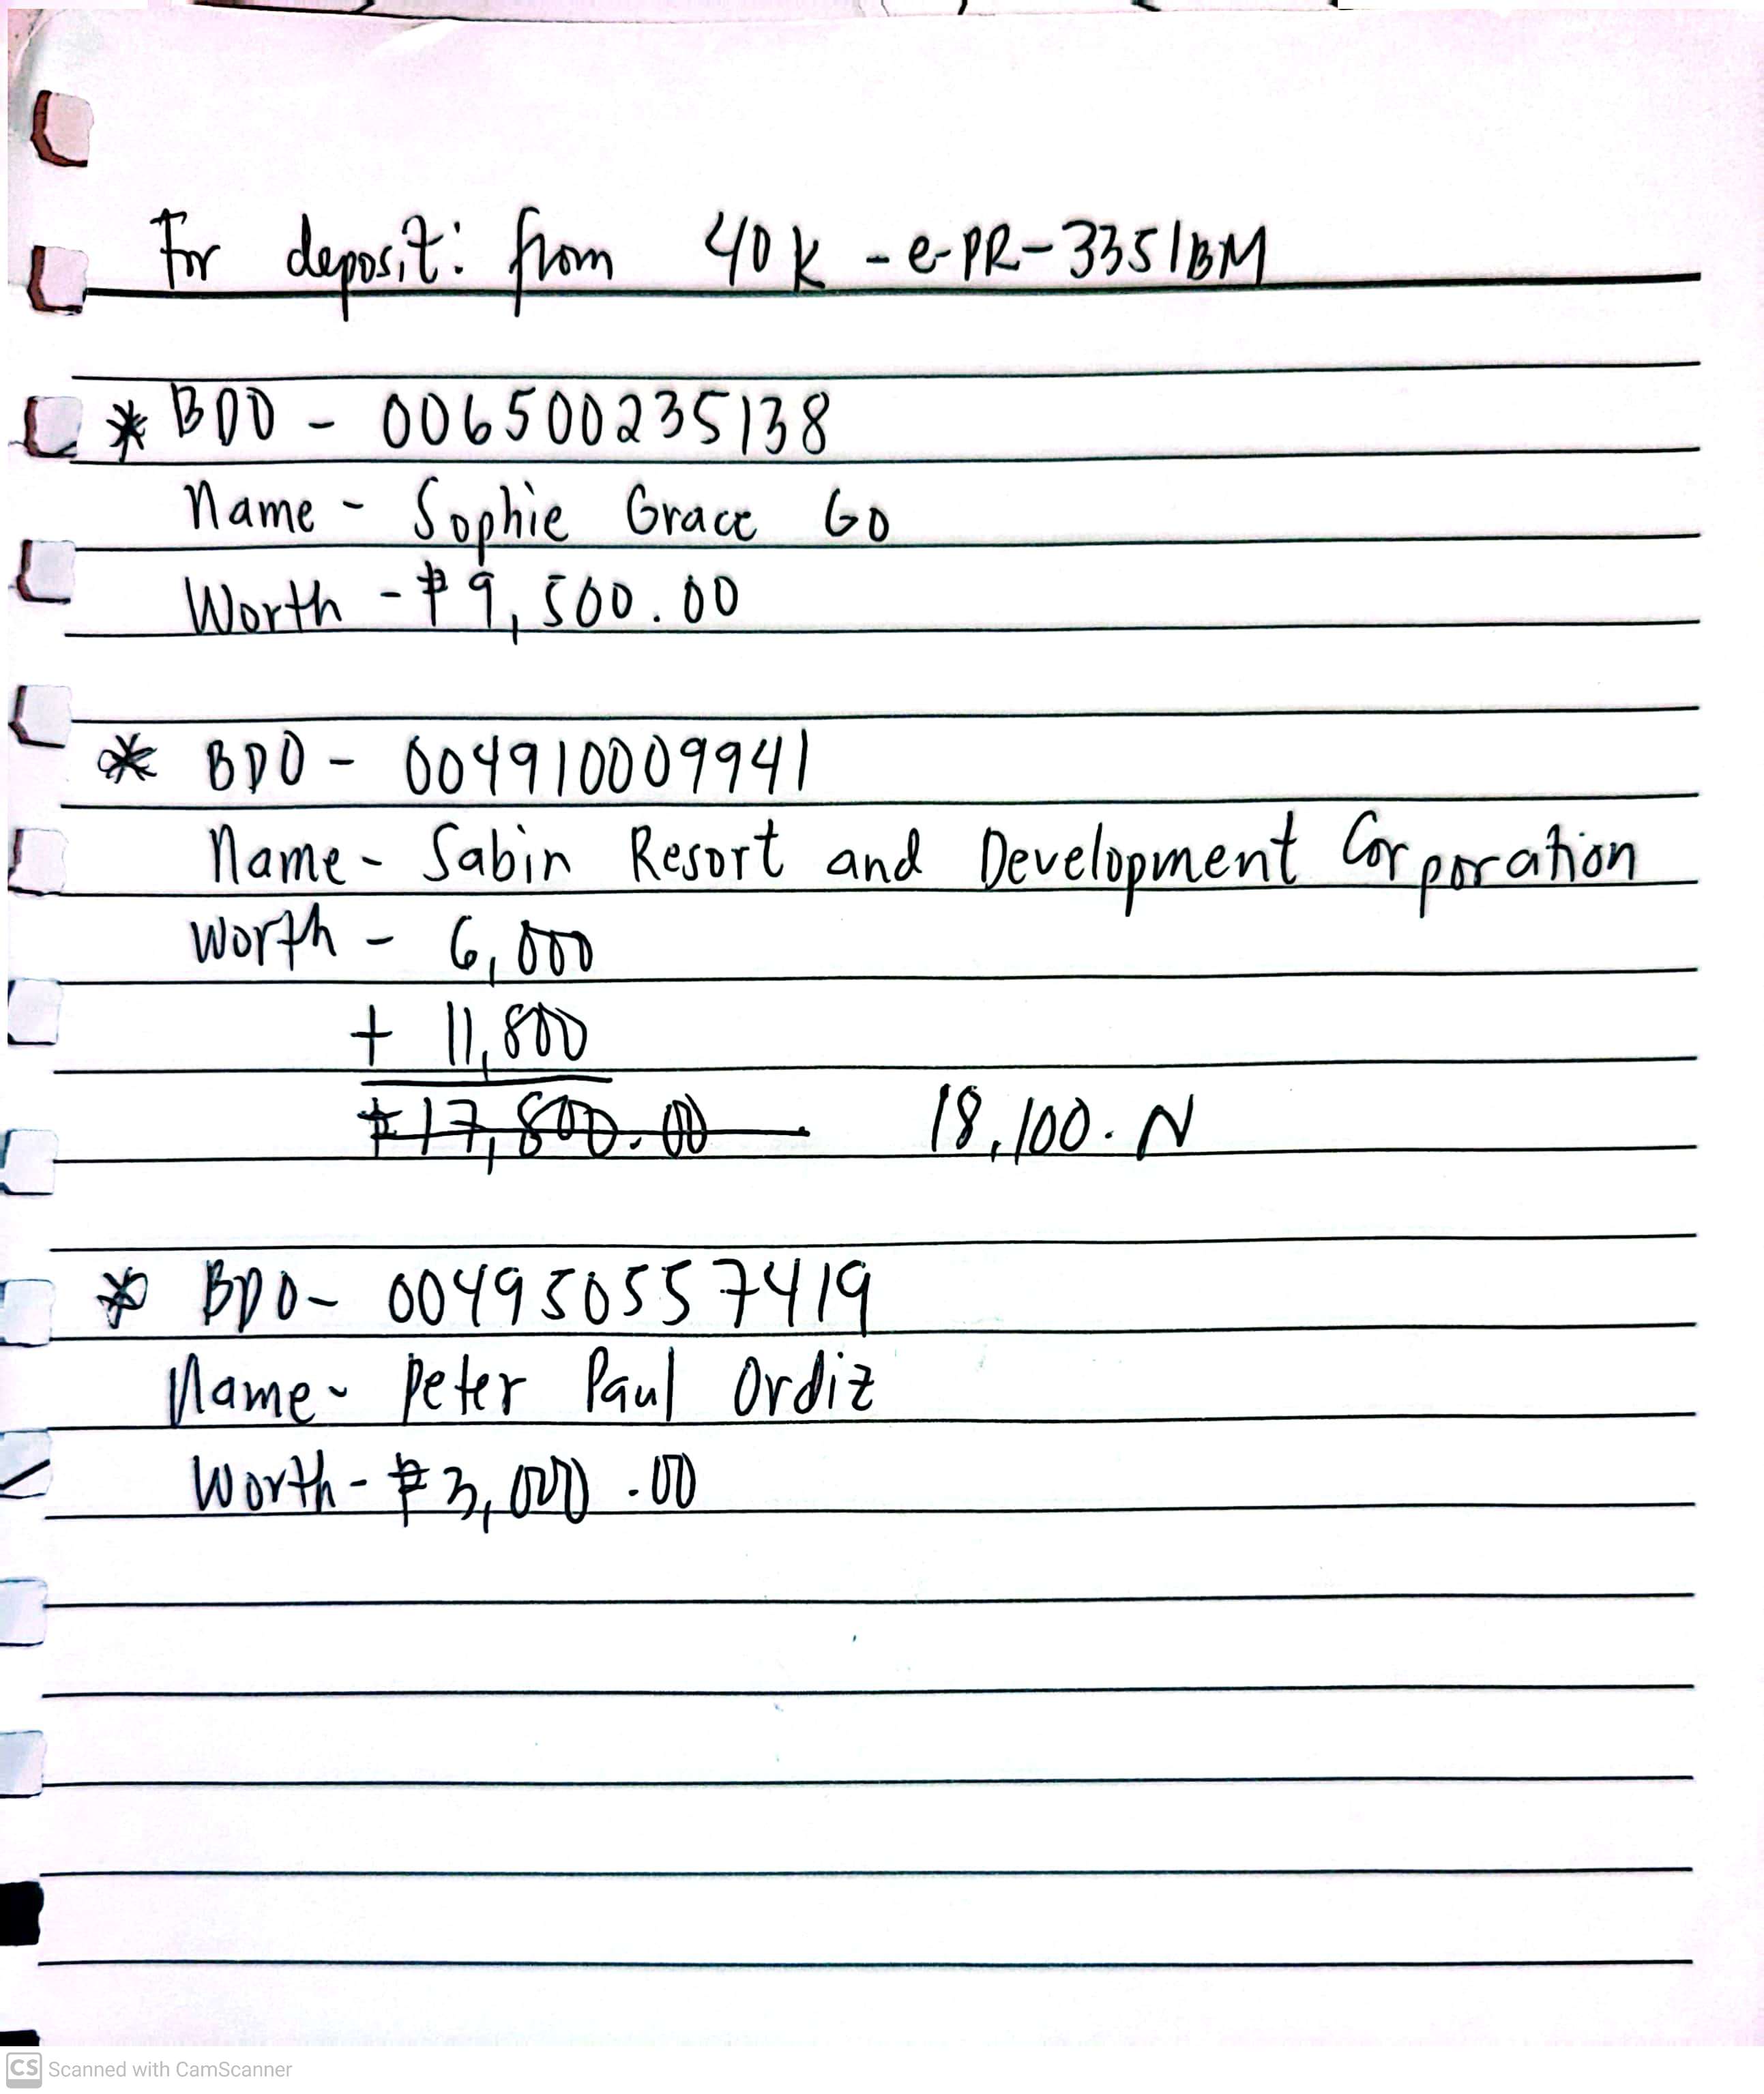 For deposit: from 40k - e-PR-3351BM
* BDO - 006500235138
Name - Sophie Grace Go
Worth - ₱9,500.00
* BDO - 004910009941
Name - Sabin Resort and Development Corporation
Worth - 6,000
+ 11,800
₱17,800.00 18,100. N
* BDO - 004950557419
Name - Peter Paul Ordiz
Worth - ₱3,000.00
CS Scanned with CamScanner